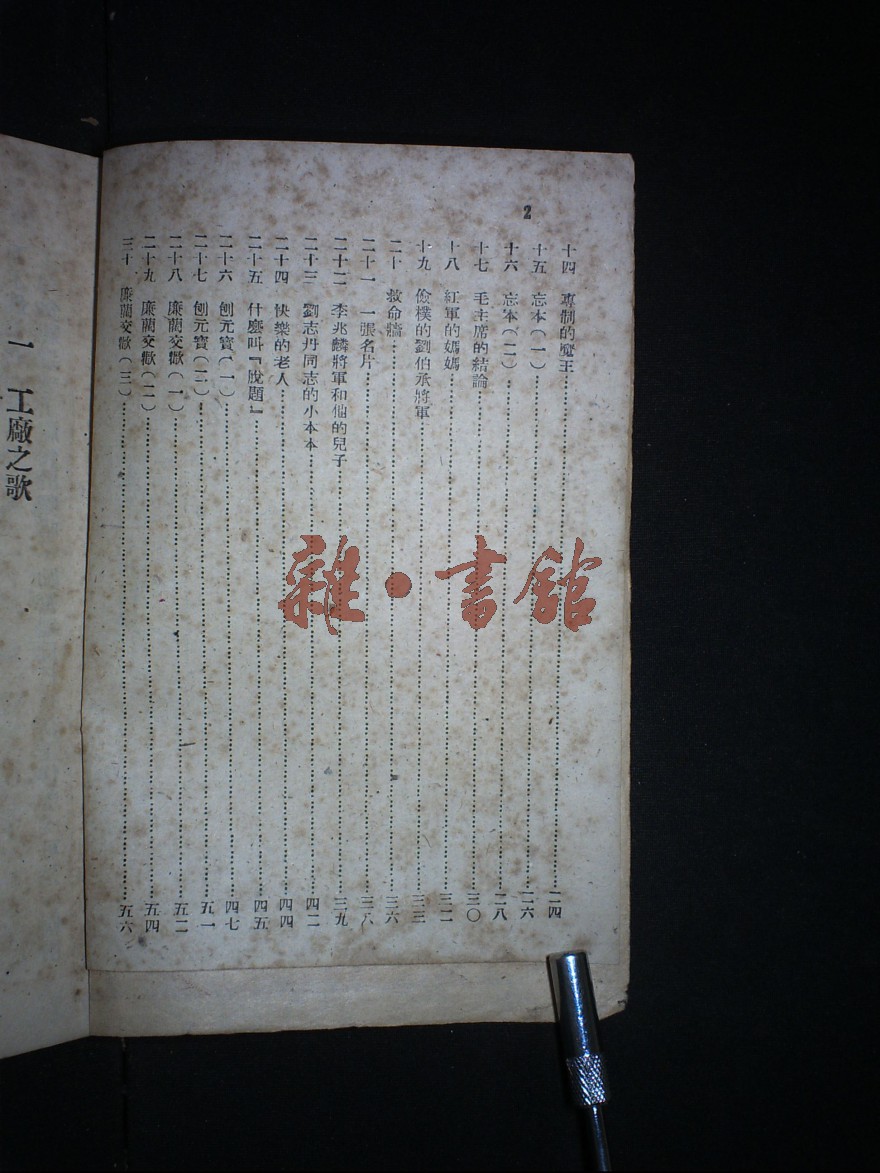 2
十四　專制的魔王…………二四
十五　忘本（一）…………二六
十六　忘本（二）…………二八
十七　毛主席的結論…………三〇
十八　紅軍的媽媽…………三二
十九　儉樸的劉伯承將軍…………三三
二十　救命牆…………三六
二十一　一張名片…………三八
二十二　李兆麟將軍和他的兒子…………三九
二十三　劉志丹同志的小本本…………四二
二十四　快樂的老人…………四四
二十五　什麼叫『脫題』…………四五
二十六　刨元寶（一）…………四七
二十七　刨元寶（二）…………五一
二十八　廉藺交歡（一）…………五二
二十九　廉藺交歡（二）…………五四
三十　廉藺交歡（三）…………五六
一　工廠之歌
雜·書館